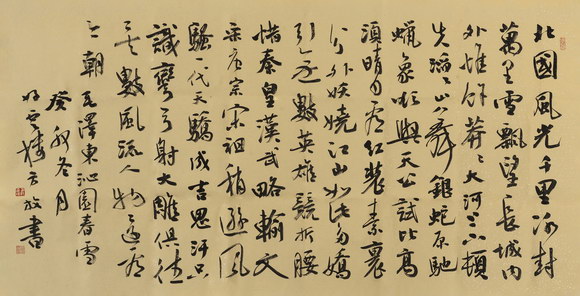 北國風光千里冰封
萬里雪飄望長城內
外惟餘莽〻大河上下頓
失滔〻山舞銀蛇原馳
蠟象欲與天公試比高
須晴日看紅裝素裹
分外妖嬈江山如此多嬌
引無數英雄競折腰
惜秦皇漢武略輸文
采唐宗宋祖稍遜風
騷一代天驕成吉思汗只
識彎弓射大雕俱往
矣數風流人物還看
今朝 毛澤東沁園春雪
癸冬月
樓書